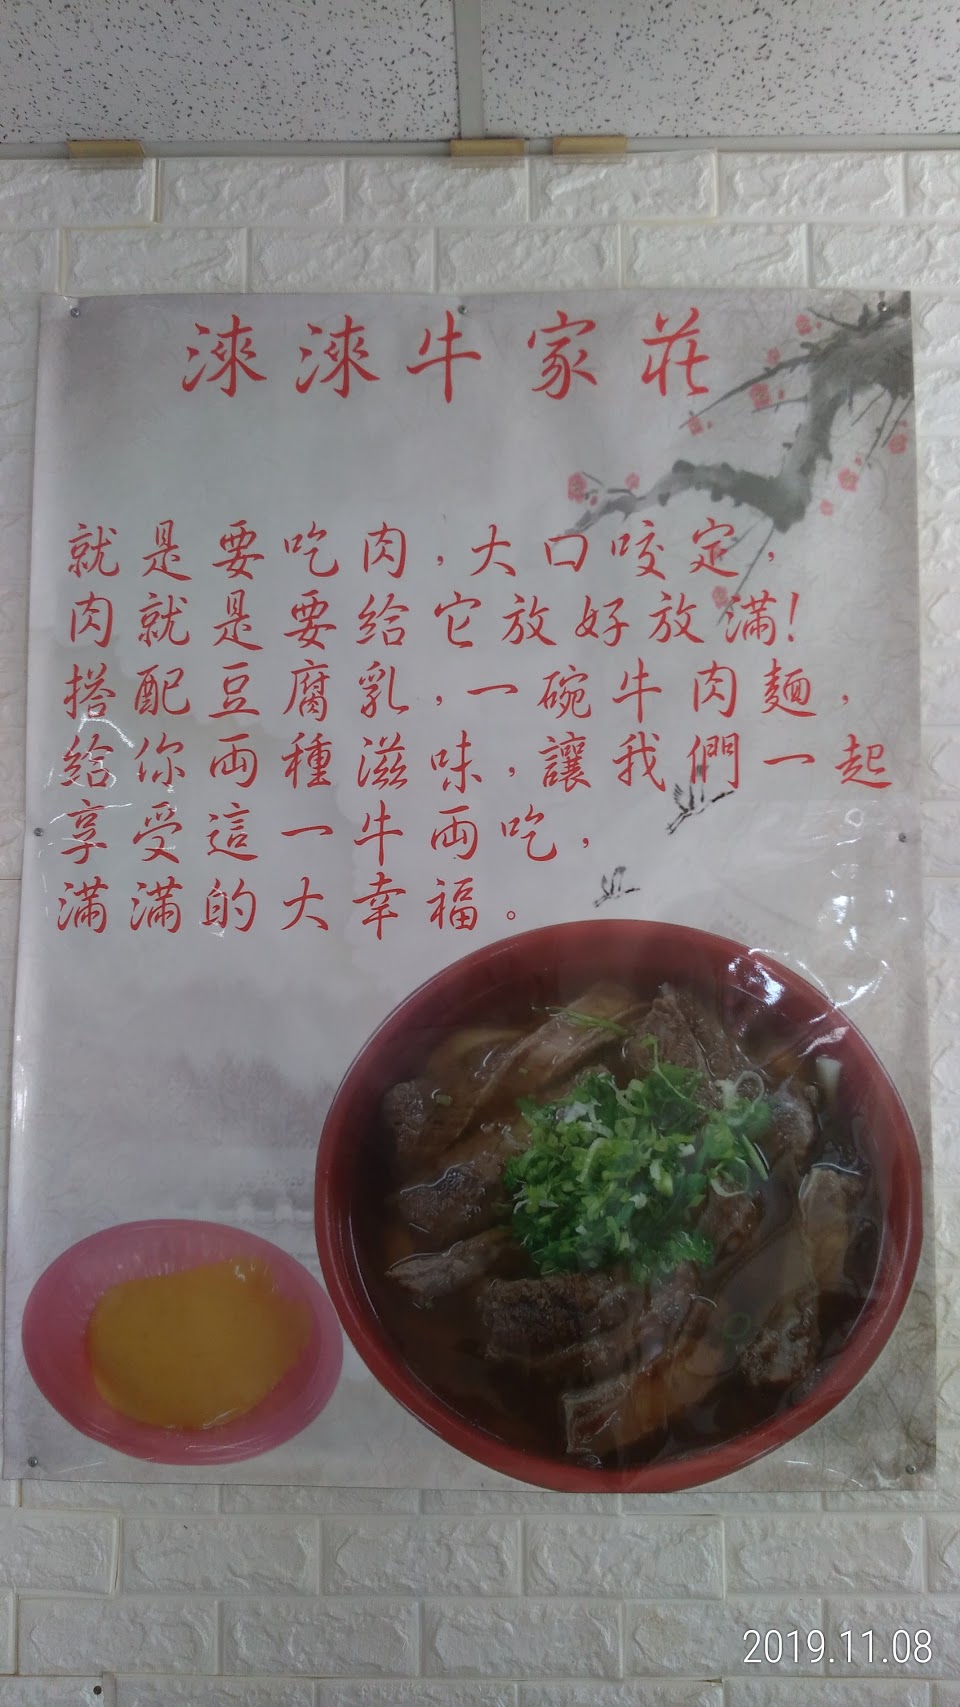 淶淶牛家莊
就是要吃肉，大口咬定，
肉就是要給它放好放滿！
搭配豆腐乳，一碗牛肉麵，
給你兩種滋味，讓我們一起
享受這一牛兩吃，
滿滿的大幸福。
2019.11.08